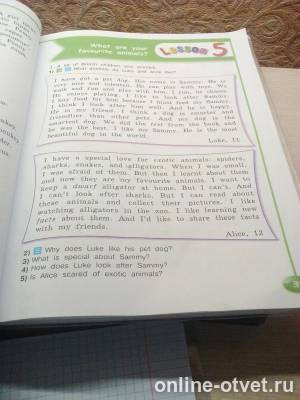 What are your
favourite animals?
Lesson 5
I have got a pet dog. His name is Sammy. He is
very nice and talented. He can play with toys. We
walk and run and play with him. I run, he chases
me. He enjoys playing. I like
I buy food for him because I must feed my Sammy.
I think I look after him well. And he is happy.
He is my friend. I think a dog is smarter and
friendlier than other pets. And my dog is the
smartest dog. We did a test from the book and
he was the best. I like my Sammy. He is the most
beautiful dog in the world.
Luke, 11
I have a special love for exotic animals: spiders,
sharks, snakes, and alligators. When I was small,
I was afraid of them. But then I learnt about them
and now they are my favourite animals. I want to
keep a dwarf alligator at home. But I can't. And
I can't look after sharks. But I can read about
these animals and collect their pictures. I like
watching alligators in the zoo. I like learning new
facts about them. And I'd like to share these facts
with my friends.
Alice, 12
2) Why does Luke like his pet dog?
3) What is special about Sammy?
4) How does Luke look after Sammy?
5) Is Alice scared of exotic animals?
online-otvet.ru